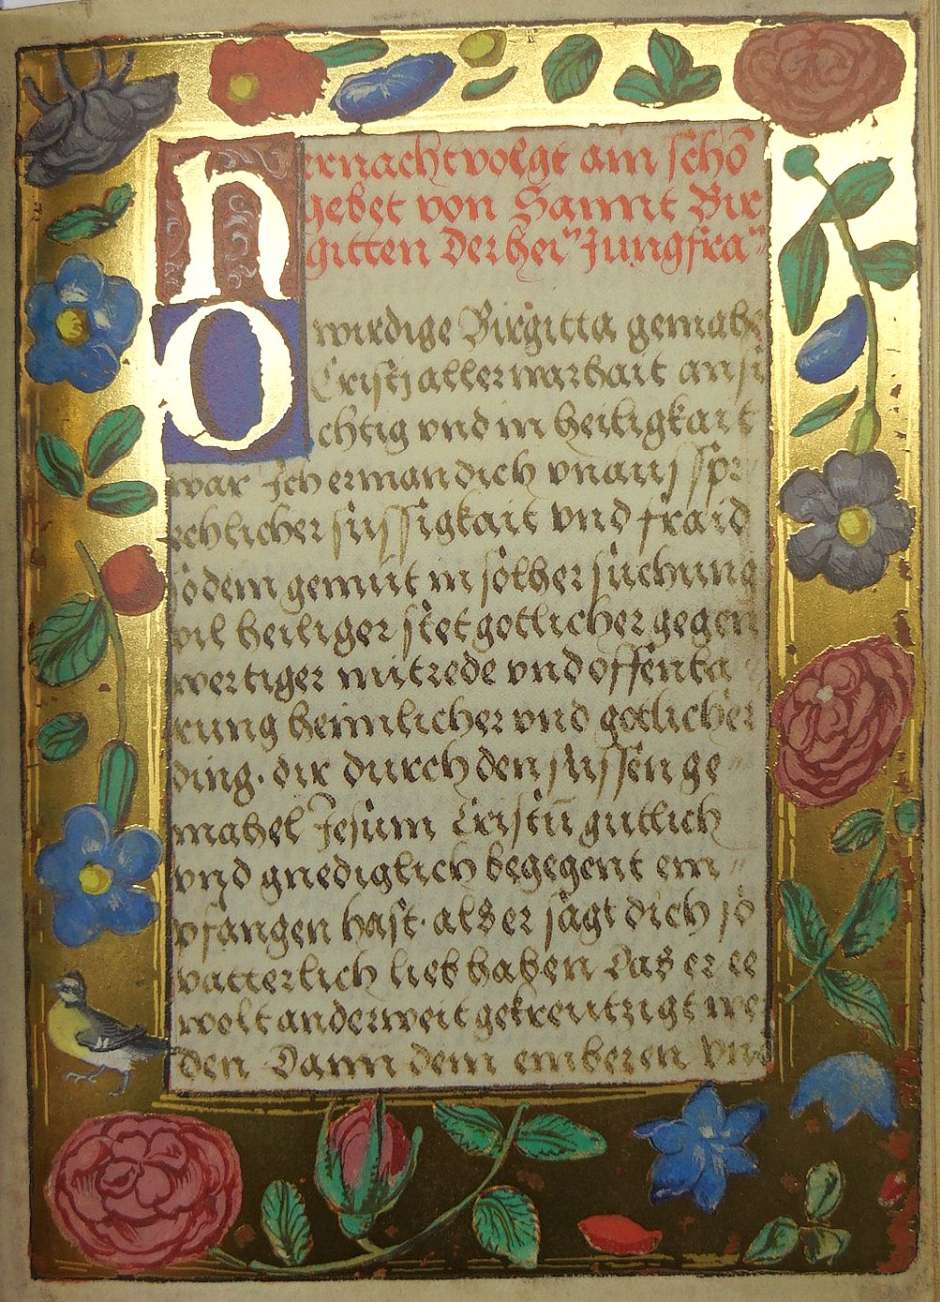 Hernacht volgt ain schō
gebet von Sannt Bir
gitten der hei" Jungfra"
O wirdige Birgitta gemahel
Cristi aller warhait ansi
chtig vnd in heiligkait
war Ich erman dich vnauß spr
echlicher süssigkait vnd fraid
so dem gemüt in solher süchung
vil heiliger stet gotlicher gegen
wertiger mitrede vnd offenba
rung heimlicher vnd gotlicher
ding. dir durch den süssen ge"
mahel Jesum Cristū gütlich
vnd gnediglich begegent em"
pfangen hast. als er sagt dich so
vatterlich lieb haben Das er ee
wolt anderweit gekreutzigt we
den Dann dem emberen vnd